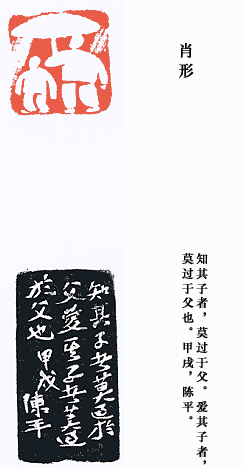 肖形
知其子者，莫过于父。爱其子者，
莫过于父也。甲戌，陈平。
知其子者莫過於
父愛其子者莫過
於父也甲戌陳平